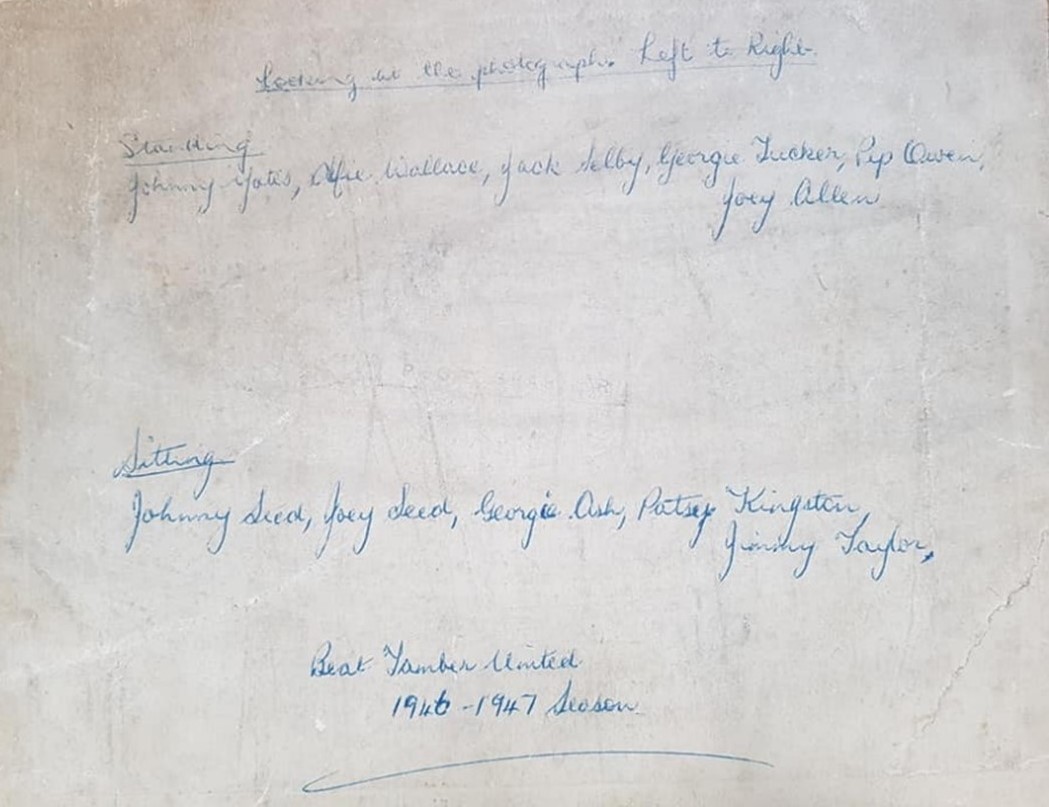 Looking at the photograph. Left to Right.
Standing
Johnny Yates, Alfie Wallace, Jack Selby, Georgie Tucker, Pip Owen,
Joey Allen
Sitting
Johnny Seed, Joey Seed, Georgie Ash, Patsy Kingston,
Jimmy Taylor,
Beat United
1946-1947 Season